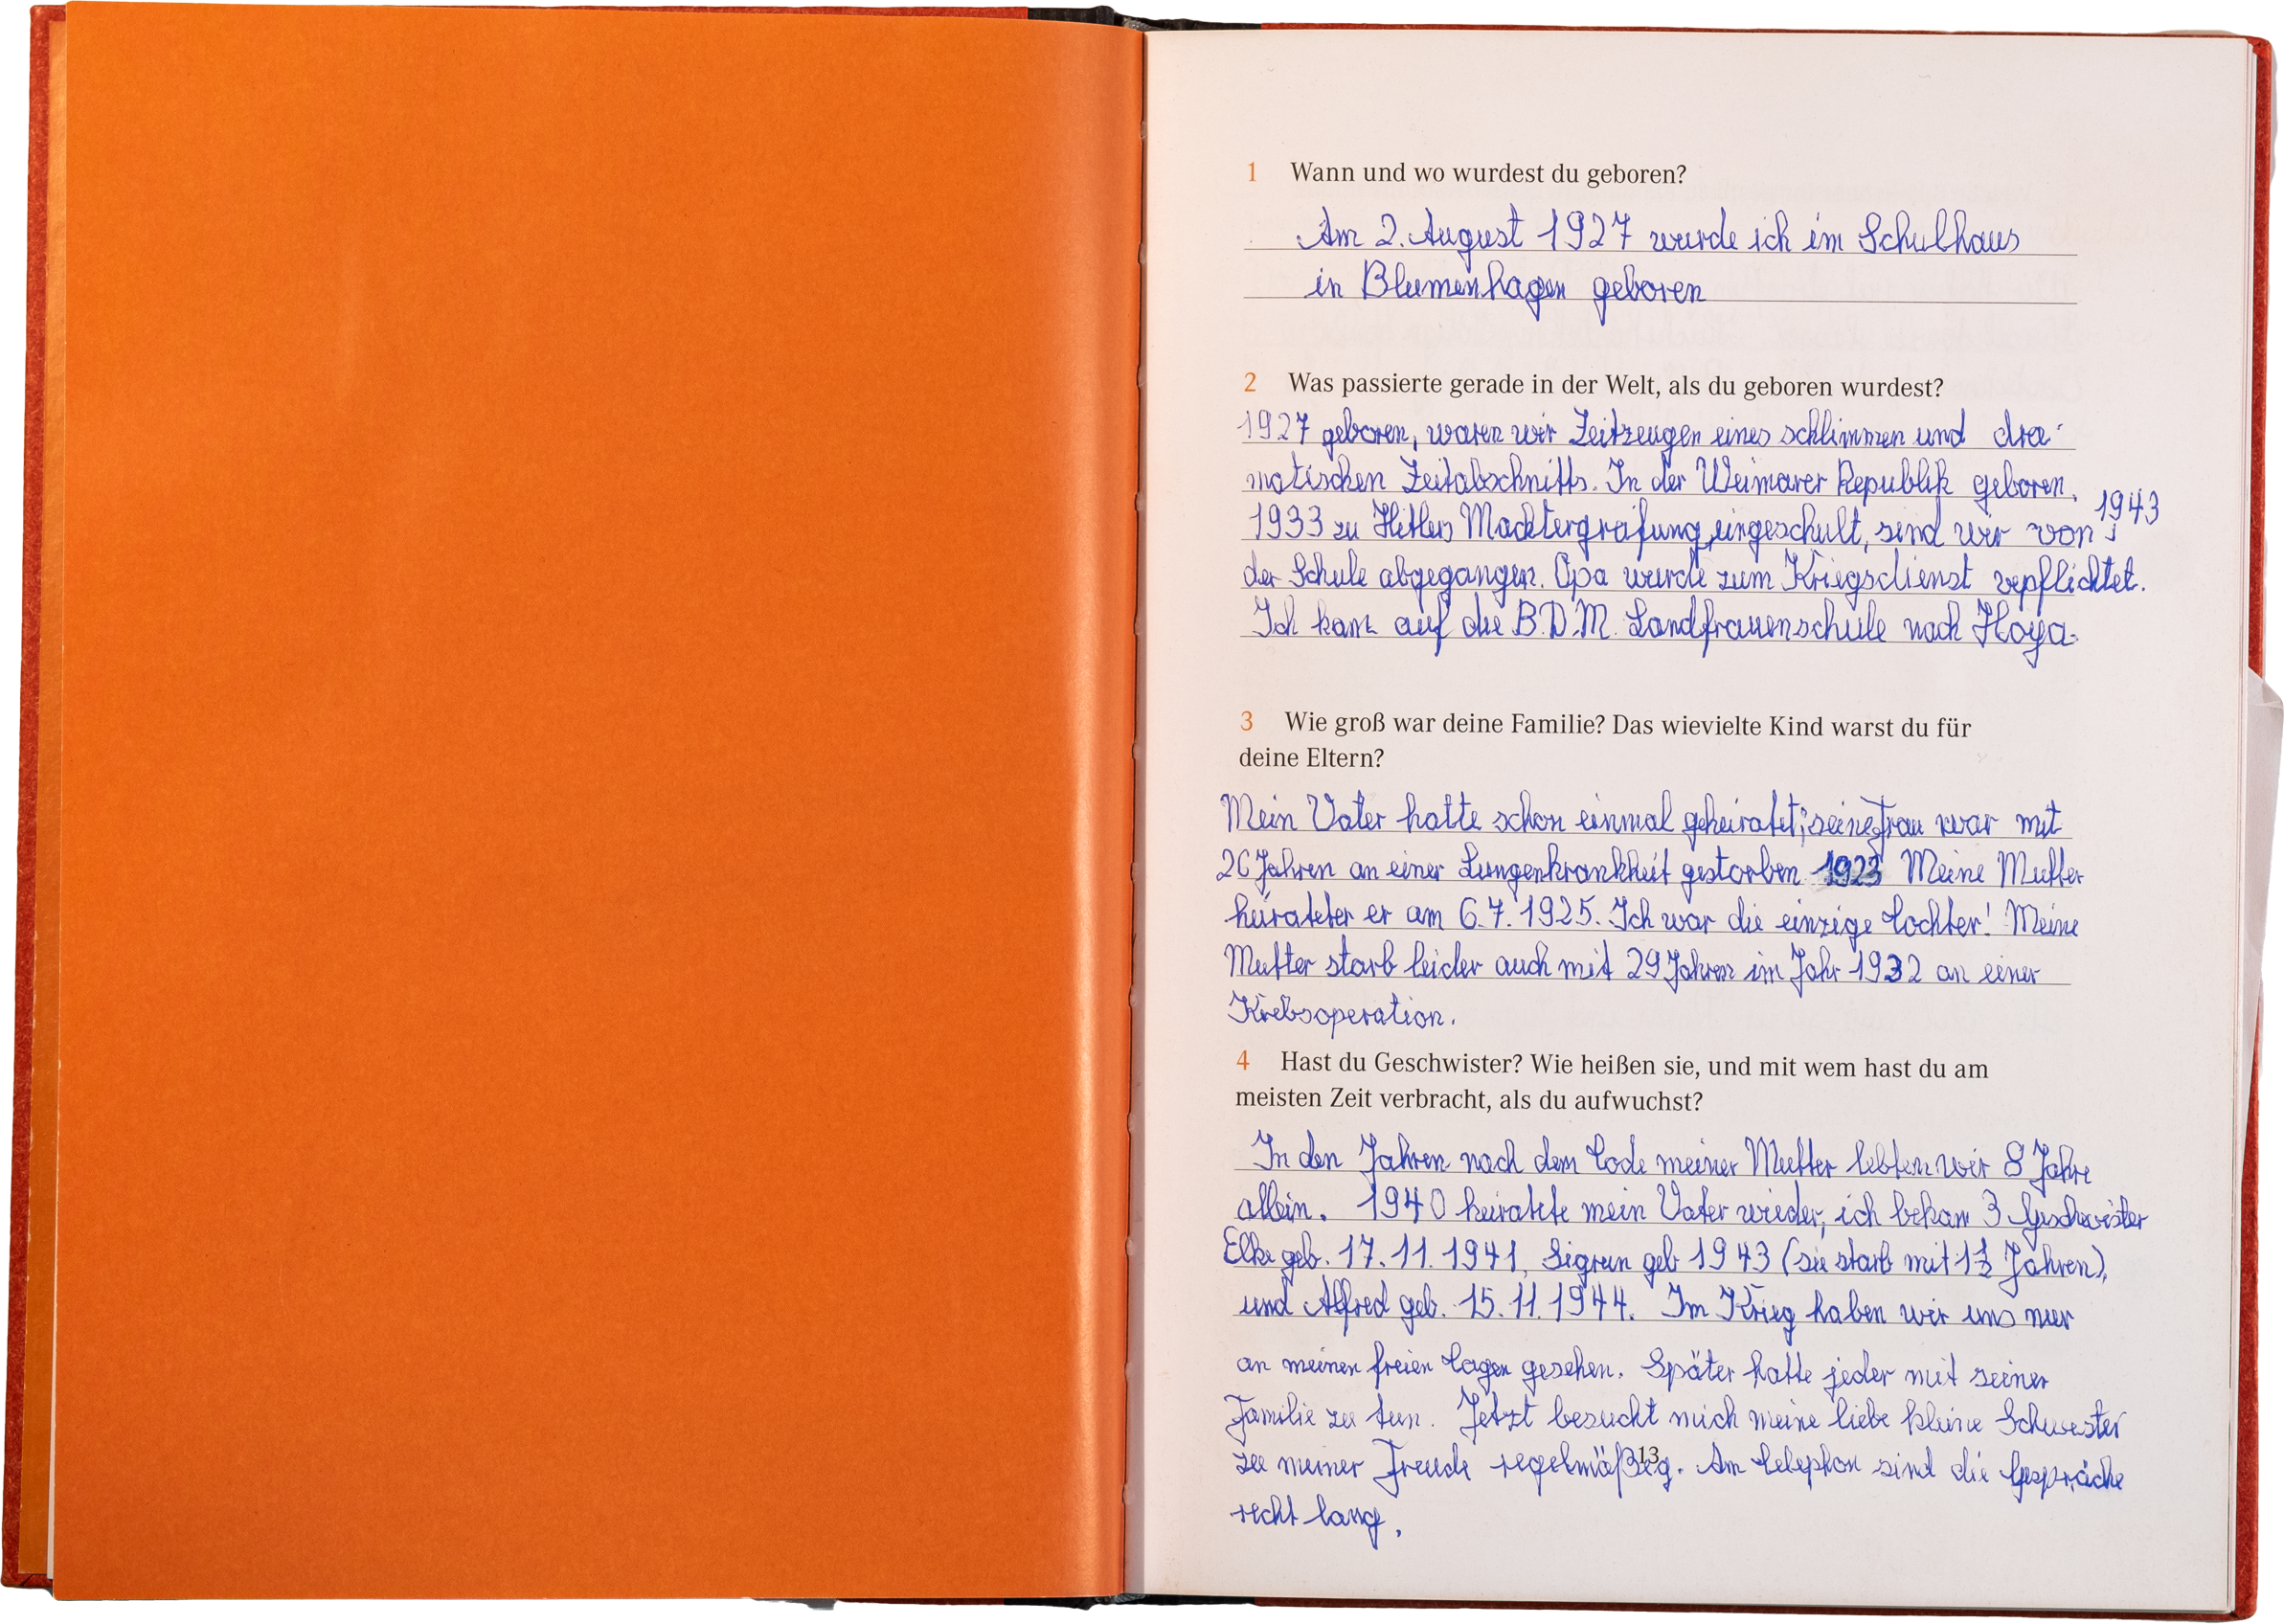 1 Wann und wo wurdest du geboren?
Am 2. August 1927 wurde ich im Schulhaus
in Blumenhagen geboren
2 Was passierte gerade in der Welt, als du geboren wurdest?
1927 geboren, waren wir Zeitzeugen eines schlimmen und dra-
matischen Zeitabschnitts. In der Weimarer Republik geboren,
1933 zu Hitlers Machtergreifung eingeschult, sind wir 1943 von
der Schule abgegangen. Opa wurde zum Kriegsdienst vepflichtet.
Ich kam auf die B.D.M. Landfrauenschule nach Hoya.
3 Wie groß war deine Familie? Das wievielte Kind warst du für
deine Eltern?
Mein Vater hatte schon einmal geheiratet; seine Frau war mit
26 Jahren an einer Lungenkrankheit gestorben 1923 Meine Mutter
heirateter er am 6.7.1925. Ich war die einzige Tochter! Meine
Mutter starb leider auch mit 29 Jahren im Jahr 1932 an einer
Krebsoperation.
4 Hast du Geschwister? Wie heißen sie, und mit wem hast du am
meisten Zeit verbracht, als du aufwuchst?
In den Jahren nach dem Tode meiner Mutter lebten wir 8 Jahre
allein. 1940 heiratete mein Vater wieder, ich bekam 3 Geschwister
Elke geb. 17.11.1941, Sigrun geb 1943 (sie starb mit 1½ Jahren),
und Alfred geb. 15.11.1944. Im Krieg haben wir uns nur
an meinen freien Tagen gesehen. Später hatte jeder mit seiner
Familie zu tun. Jetzt besucht mich meine liebe kleine Schwester
zu meiner Freude regelmäßig. Am Telephon sind die Gespräche
recht lang.
13